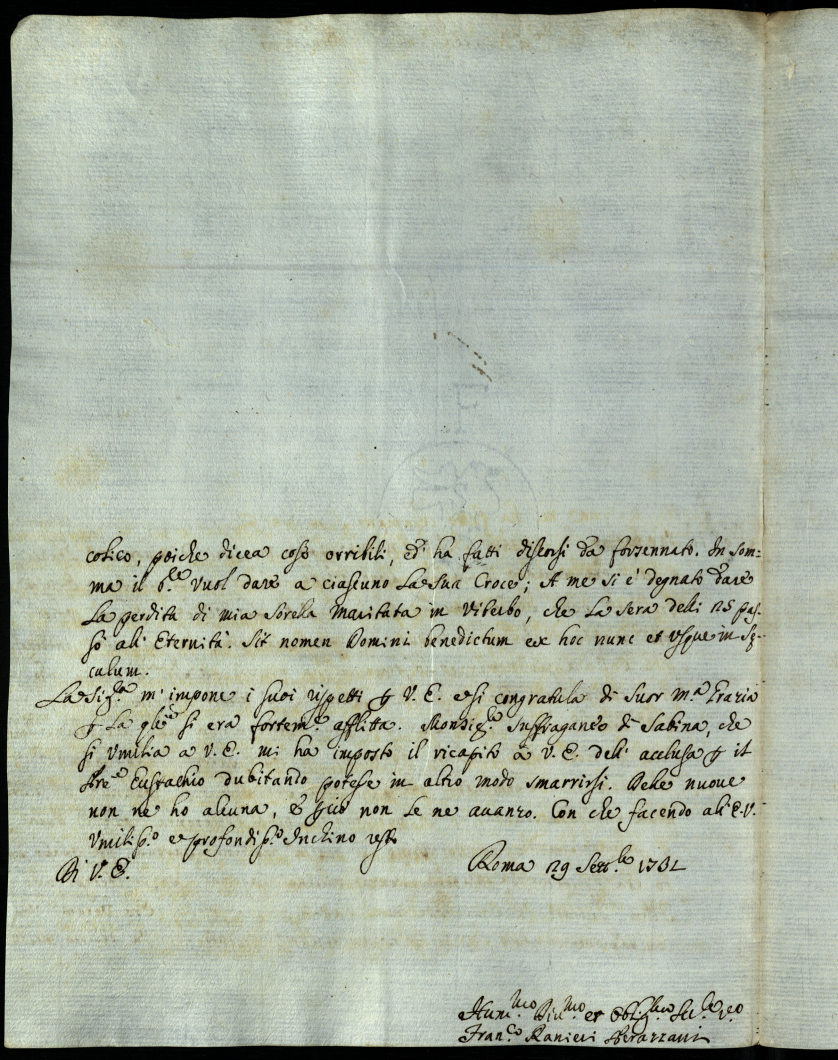 colico, poiche dicea cose orribili, ed ha fatti discorsi da forzennato. In som=
ma il S.re vuol dare a ciascuno La Sua Croce; A me si è degnato dare
La perdita di mia Sorella Maritata in Viterbo, che La Sera delli 25 pas-
sò all' Eternità. Sit nomen Domini benedictum ex hoc nunc et usque in Sę-
culum.
La Sig.ra m' impone i suoi rispetti p V. E. e si congratula di Suor M.a Grazia
p La q.le si era fortem.e afflitta. Monsig.re Suffraganeo di Sabina, che
si Umilia a V. E. mi ha imposto il ricapito a V. E. dell' acclusa p il
Eustachio dubitando potesse in altro modo smarrirsi. Delle nuove
non ne ho alcuna, e pciò non Le ne avanzo. Con che facendo all' E. V.
Umiliss.o e profondiss.o Inchino resto
Di V. E.
Roma 29 Sett.bre 1731
Hum.mo Div.mo et Oblig.mo
Fran.co Ranieri